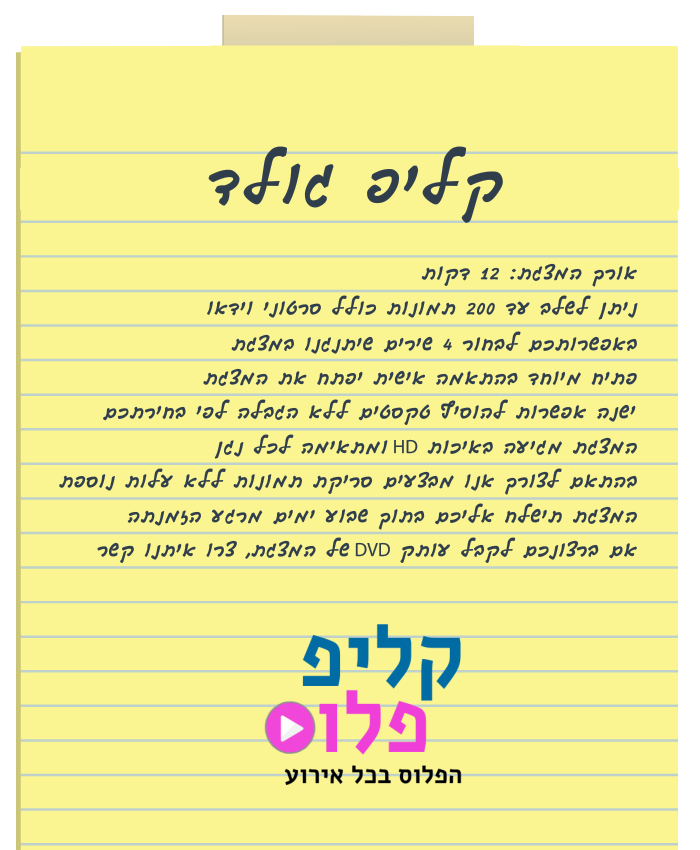 קליפ גולד
אורך המצגת: 12 דקות
ניתן לשלב עד 200 תמונות כולל סרטוני וידאו
באפשרותכם לבחור 4 שירים שיתנגנו במצגת
פתיח מיוחד בהתאמה אישית יפתח את המצגת
ישנה אפשרות להוסיף טקסטים ללא הגבלה לפי בחירתכם
המצגת מגיעה באיכות HD ומתאימה לכל נגן
בהתאם לצורך אנו מבצעים סריקת תמונות ללא עלות נוספת
המצגת תישלח אליכם בתוך שבוע ימים מרגע הזמנתה
אם ברצונכם לקבל עותק DVD של המצגת, צרו איתנו קשר
קליפ
פלוס
הפלוס בכל אירוע